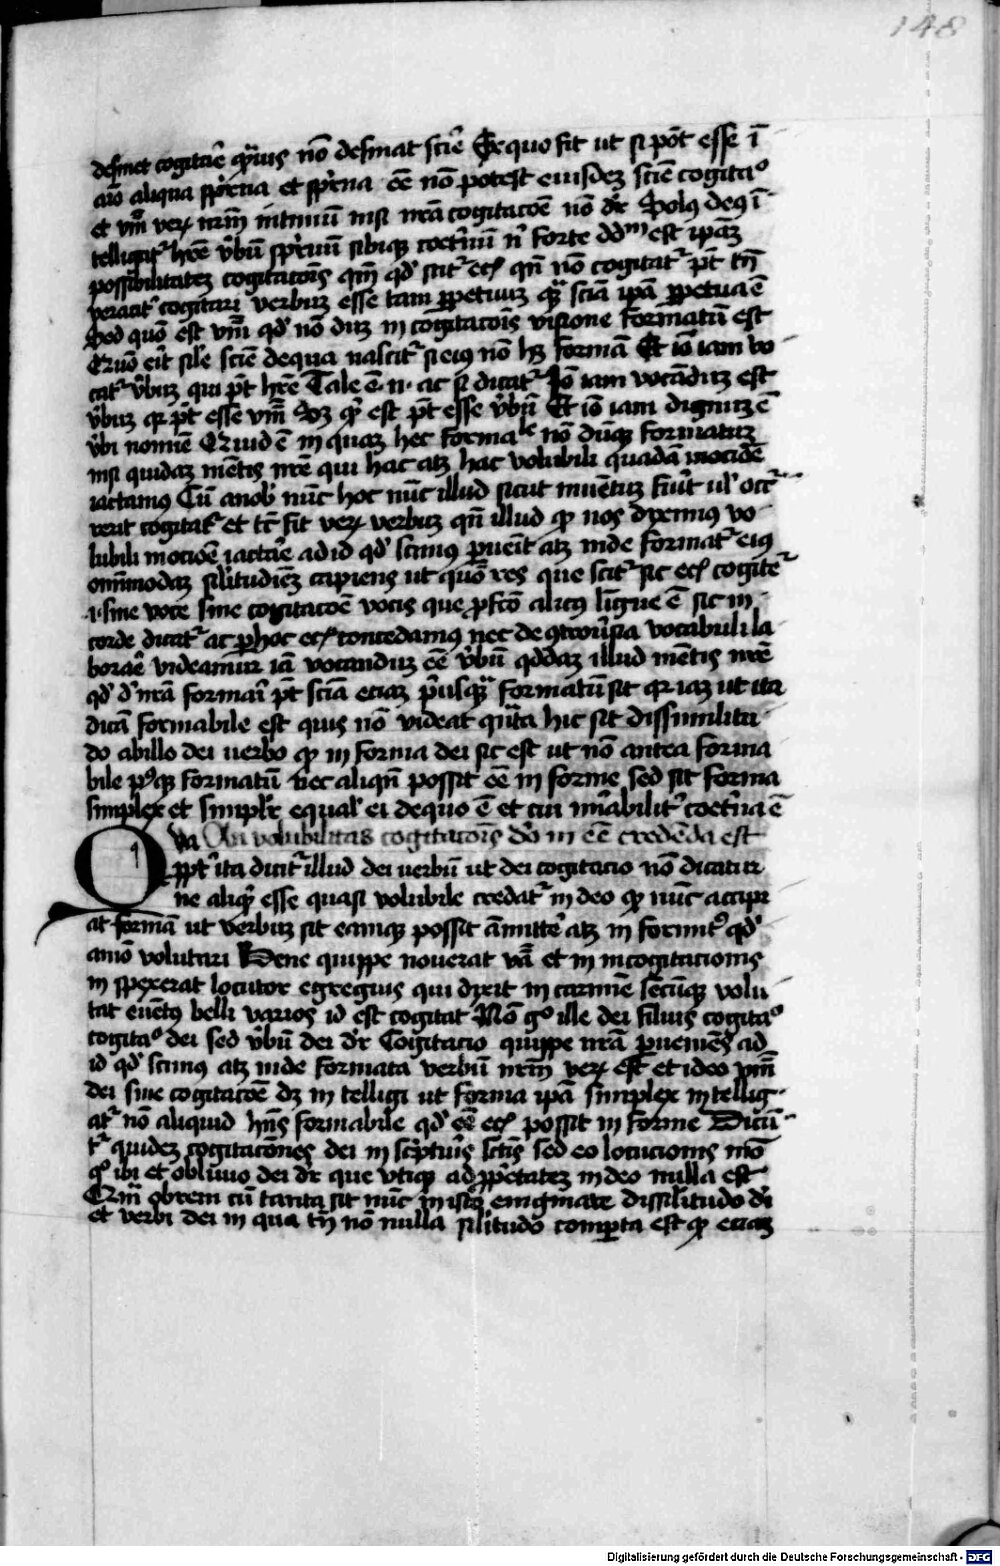 148
desinet cogitare quāvis nō desinat scire Ex quo fit ut si pōt esse ī
aīo aliqua sp̄terna et sp̄terna eē nō potest eiusdez scīe cogitaº
et vm̄ verꝝ nrm̄ intimū nisi nrā cogitacōe nō dr̄ Solus deus ī
telligit̄ hr̄e v̄bū sp̄trnū sibiqz coet̄nū nⁱ forte dd̄m est ip̄az
possibilitatez cogitacōis qm̄ qd̄ scit̄ eciā qn̄ nō cogitat̄ pt̄ tn̄
veracit̄ cogitari verbuz esse tam ꝑpetuuz qᷓ scīa ip̄a ꝑpetua ē
Sed quō est vm̄ qd̄ nō duz in cogitacōis visione formatū est
Quō eīt sil̄e scīe de qua nascit̄ si eius nō hz formā Et iō iam vo-
cat̄ v̄buz quia pt̄ hr̄e Tale ē .n. ac si dicat̄ Iō iam vocāduz est
v̄buz qꝛ pt̄ esse vm̄ Sz qd̄ est pt̄ esse v̄bū Et iō iam dignuz ē
v̄bi nomīe Quid ē inquaz hec formale nō dūqz formatuz
nisi quidaz mētis nr̄e qui hac atz hac volubili quadā mociōe
iactamus Cū a nob̄ nūc hoc nūc illud sicut inuētuz fūit ul̄ occr̄
rerit cogitat̄ et tc̄ fit verꝝ verbuz qn̄ illud qd̄ nos diximus vo-
lubili mociōe iactare ad id qd̄ scimus ꝑueīt atz inde format̄ eius
om̄imodaz sil̄itudiēz capiens ut quō res que scit̄ sic eciā cogitet̄
.i. sine voce sine cogitacōe vocis que ꝓfcō alicus līgue ē sic in
corde dicat̄ ac ꝑhoc eciā concedamus nec de qtrou̓sia vocabuli la
borare videamur iā vocanduz eē v̄bū qddaz illud mētis nr̄e
qd̄ d̓ nrā formari pt̄ scīa eciaz p̓usqᷓ formatū sit qꝛ iaz ut ita
dicā formabile est quis nō videat qᷓta hic sit dissimilitu-
do ab illo dei uerbo qd̄ in forma dei sic est ut nō antea forma
bile pꝰqz formatū nec aliqn̄ possit eē in forme sed sit forma
simplex et simplr̄ equal̄ ei de quo ē et cui mr̄abilit̄ coet̄na ē
Qua An volubilitas cogitacōis dō in eē credēda est
ꝓpt̄ ita dicit̄ illud dei uerbū ut dei cogitacio nō dicatur
ne aliqd̄ esse quasi volubile credat̄ in deo qd̄ nūc accipi
at formā ut verbuz sit eamqz possit āmitte̓ atz in formit̓ qd̄
amō volutari Bene quippe nouerat vā et in incogitacionis
in spexerat locutor egregius qui dixit in carmīe secūqz volu
tat euētus belli varios id est cogitat Nō gº ille dei filius cogitaº
cogitaº dei sed v̄bū dei dr̄ Cogitacio quippe nrā ꝑueniēs ad
id qd̄ scimus atz inde formata verbū nrm̄ verꝝ est et ideo vm̄
dei sine cogitacōe dz in telligi ut forma ip̄a simplex intellig-
at̄ nō aliquid hn̄s formabile qd̄ eē eciā possit in forme Dicū-
t̄ quidez cogitacōnes dei in sc̓pturis sctīs sed eo locucionis mō
qº ibi et obliuio dei dr̄ que vtiqz ad ꝓp̓etatez in deo nulla est
Qm̄ obrem cū tanta sit nūc in isto enigmate dissil̄itudo dī
et verbi dei in qua tn̄ nō nulla sil̄itudo comꝑta est qd̄ eciaz
Digitalisierung gefördert durch die Deutsche Forschungsgemeinschaft - DFG